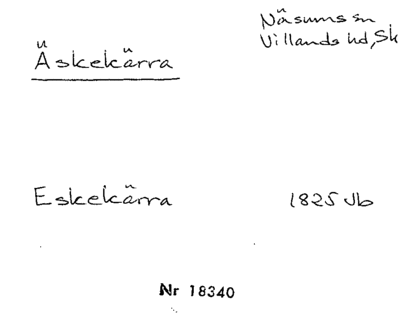 Äskekärra
Näsums sn
Villands hd, Sk
Eskekärra 1825 Jb
Nr 18340